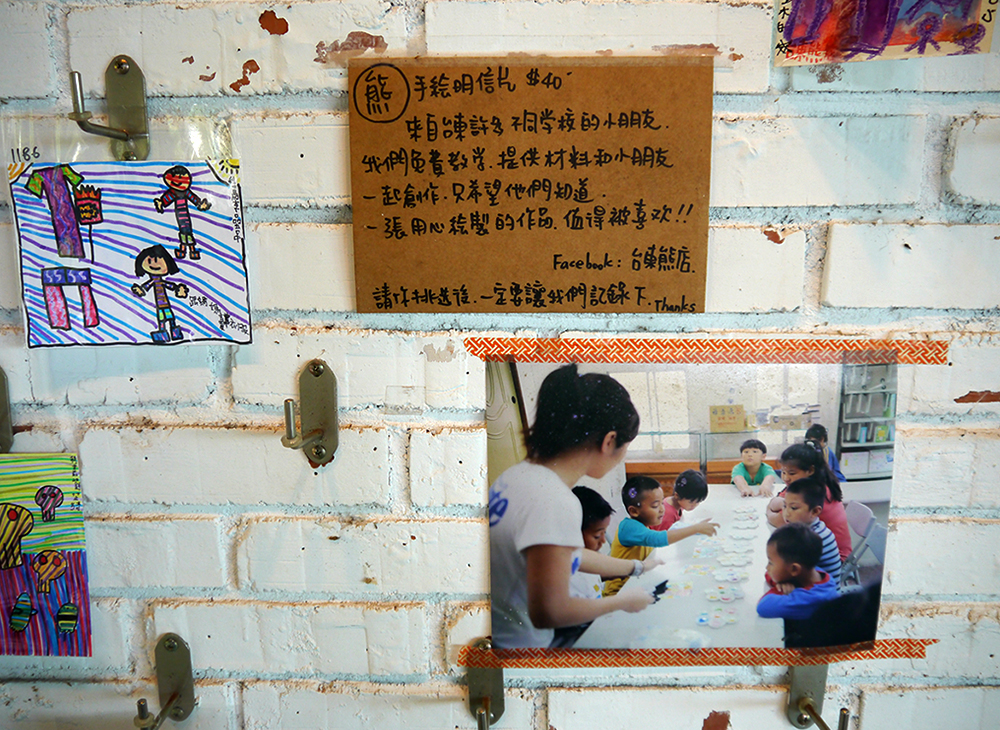 熊 手绘明信片 $40
來自台東許多不同學校的小朋友.
我們免費教學.提供材料和小朋友
一起創作.只希望他們知道.
一張用心绘製的作品.值得被喜欢!!
Facebook: 台東熊店.
請你挑選後.一定要讓我們記錄下.Thanks
1186